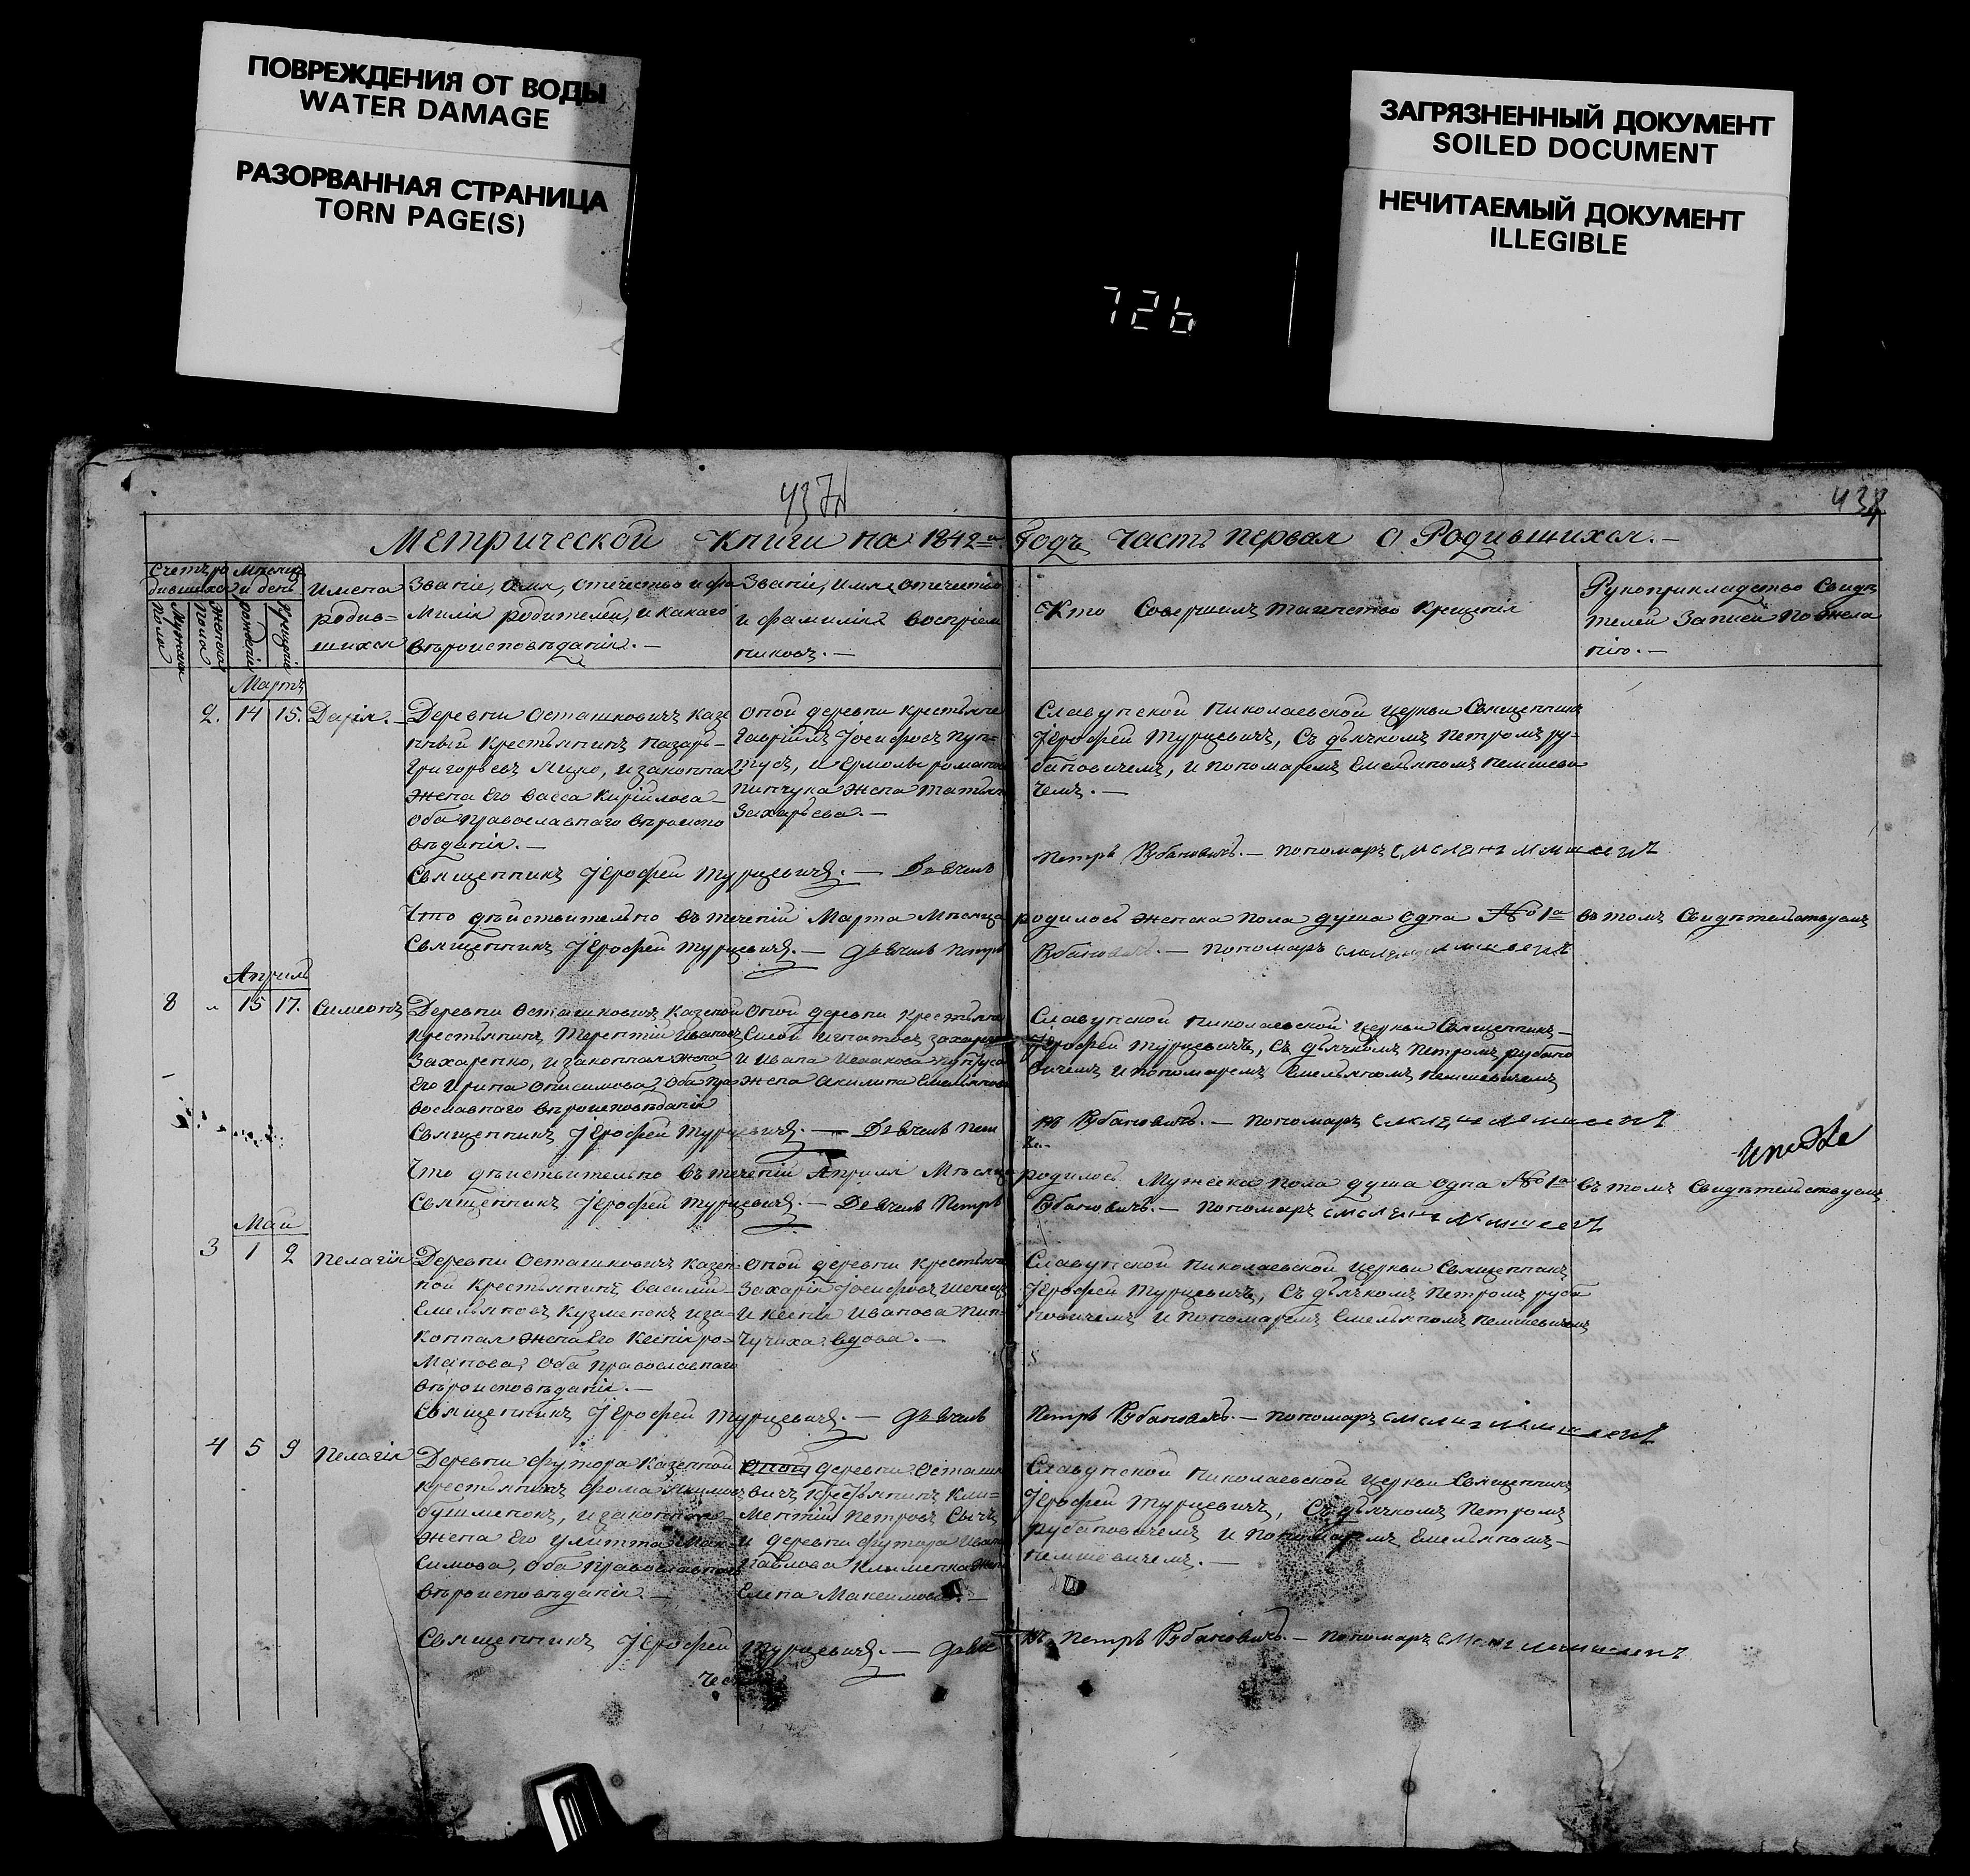 ПОВРЕЖДЕНИЯ ОТ ВОДЫ
WATER DAMAGE
РАЗОРВАННАЯ СТРАНИЦА
TORN PAGE(S)
ЗАГРЯЗНЕННЫЙ ДОКУМЕНТ
SOILED DOCUMENT
НЕЧИТАЕМЫЙ ДОКУМЕНТ
ILLEGIBLE
726
437
438
Метрической Книги на 1842й Годъ Часть первая О Родившихся.—
Счетъ ро
дившихся
Мужеска
Пола
Женска
Пола
Мѣсяцъ
и день
рожденія
Крещенія
Имена
родив=
шихся
Званіе, Имя, отечество и фа
милія родителей, и какаго
вѣроисповѣданія.—
Званіе, Имя, отечество
и фамилія воспріем
никовъ.—
Кто Совершилъ таинство крещенія
Рукоприкладство Свидѣ
телей Записей по жела
нію.—
Мартъ
2. 14 15. Дарія.—
Деревни Осташковичъ Казе
нный Крестьянинъ Назарь—
Григорьевъ Яцко, и законная
жена Его Васса Кирилова—
Оба православнаго вѣроиспо
вѣданія.—
оной деревни крестьяне
Гавріилъ Іосифовъ Пун=
тусъ, и Ермолы романова
Пинчука жена Татьяна
Захарьева.—
Славунской Николаевской Церкви Священникъ
Іерофей Турцевичъ, Съ дьячкомъ Петромъ ру=
бановичемъ, и пономаремъ Емельяномъ Немшеви
чемъ.—
Священникъ Іерофей Турцевичъ.— Дьячекъ
Петръ Рубановичъ.— пономарь
Что дѣйствительно въ теченіи Марта Мѣсяца родилось женска пола душа одна № 1а въ томъ Свидѣтельствуемъ
Священникъ Іерофей Турцевичъ.— дьячекъ Петръ Рубановичъ.— пономарь
Апрѣль
8 „ 15 17. Симеонъ
Деревни Осташковичъ Казеной
Крестьянинъ Терентій Ивановъ
Захаренко, и законная жена
Его Ирина Онисимова, Оба пра
вославнаго вѣроисповѣданія
Оной деревни Крестьяне
и Ивана Исаакова
жена Акилина Емельянова
Славунской Николаевской Церкви Священникъ—
Іерофей Турцевичъ, Съ дьячкомъ Петромъ рубано
вичемъ и пономаремъ Емельяномъ Немшевичемъ
Священникъ Іерофей Турцевичъ.— Дьячекъ Пет
ръ Рубановичъ.— пономарь
Что дѣйствительно въ теченіи Апрѣля Мѣсяца родилось Мужеска пола душа одна № 1а въ томъ Свидѣтельствуемъ
Священникъ Іерофей Турцевичъ.— Дьячекъ Петръ Рубановичъ.— пономарь
Май
3 1 2 Пелагія
Деревни Осташковичъ Казен=
ной Крестьянинъ Василій
Емельяновъ Кузменокъ и за=
конная жена Его Ксенія ро=
манова, Оба православнаго
вѣроисповѣданія.—
Оной деревни Крестьяне
Захарій Іосифовъ
и Ксенія Иванова Пин=
чучиха вдова.—
Славунской Николаевской Церкви Священникъ
Іерофей Турцевичъ, Съ дьячкомъ Петромъ руба
новичемъ и Пономаремъ Емельяномъ Немшевичемъ
Священникъ Іерофей Турцевичъ.— дьячекъ
Петръ Рубановичъ.— пономарь
4 5 9 Пелагія
Деревни футора Казенной
Крестьянинъ Фома
и законная
жена Его Улитта Мак=
симова, Оба православнаго
вѣроисповѣданія.—
Оной деревни Осташко
вичъ Крестьянинъ Кли=
ментій Петровъ Сычъ
и деревни футора Ивана
Павлова Клименка жена
Елена Максимова.—
Славунской Николаевской Церкви Священникъ
Іерофей Турцевичъ, Съ дьячкомъ Петромъ
Рубановичемъ и Пономаремъ Емельяномъ—
Немшевичемъ.—
Священникъ Іерофей Турцевичъ.—
Петръ Рубановичъ.— пономарь